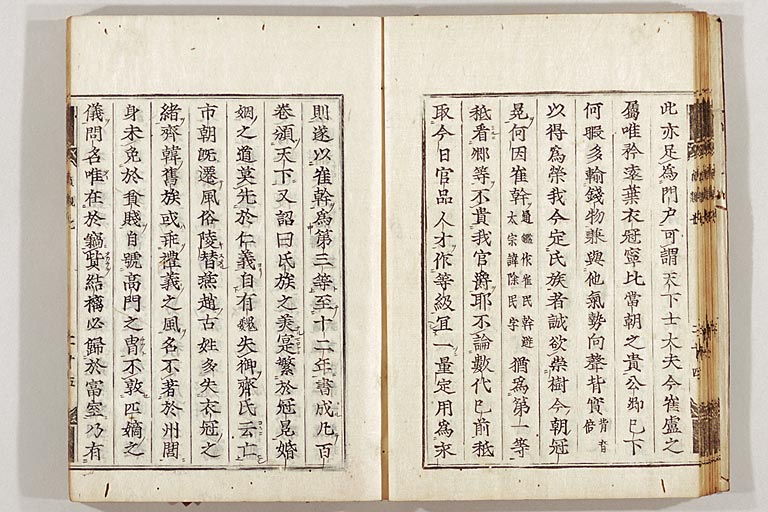 此亦足爲門戸可謂天下士大夫今崔盧之
屬唯矜遠葉衣冠寧比當朝之貴公卿已下
何暇多輸錢物兼與他氣勢向聲背實背音倍
以得爲榮我今定氏族者誠欲崇樹今朝冠
冕何因崔幹通鑑作崔民幹避太宗諱除民字猶爲第一等
秪看卿等不貴我官爵耶不論數代已前秪
取今日官品人才作等級宜一量定用爲永
則遂以崔幹爲第三等至十二年書成凡百
卷頒天下又詔曰氏族之美寔繁於冠冕婚
姻之道莫先於仁義自有魏失御齊氏云亡
市朝旣遷風俗陵替燕趙古姓多失衣冠之
緒齊韓舊族或乖禮義之風名不著於州閭
身未免於貧賤自號高門之冑不敦匹嫡之
儀問名唯在於竊貲結褵必歸於富室乃有